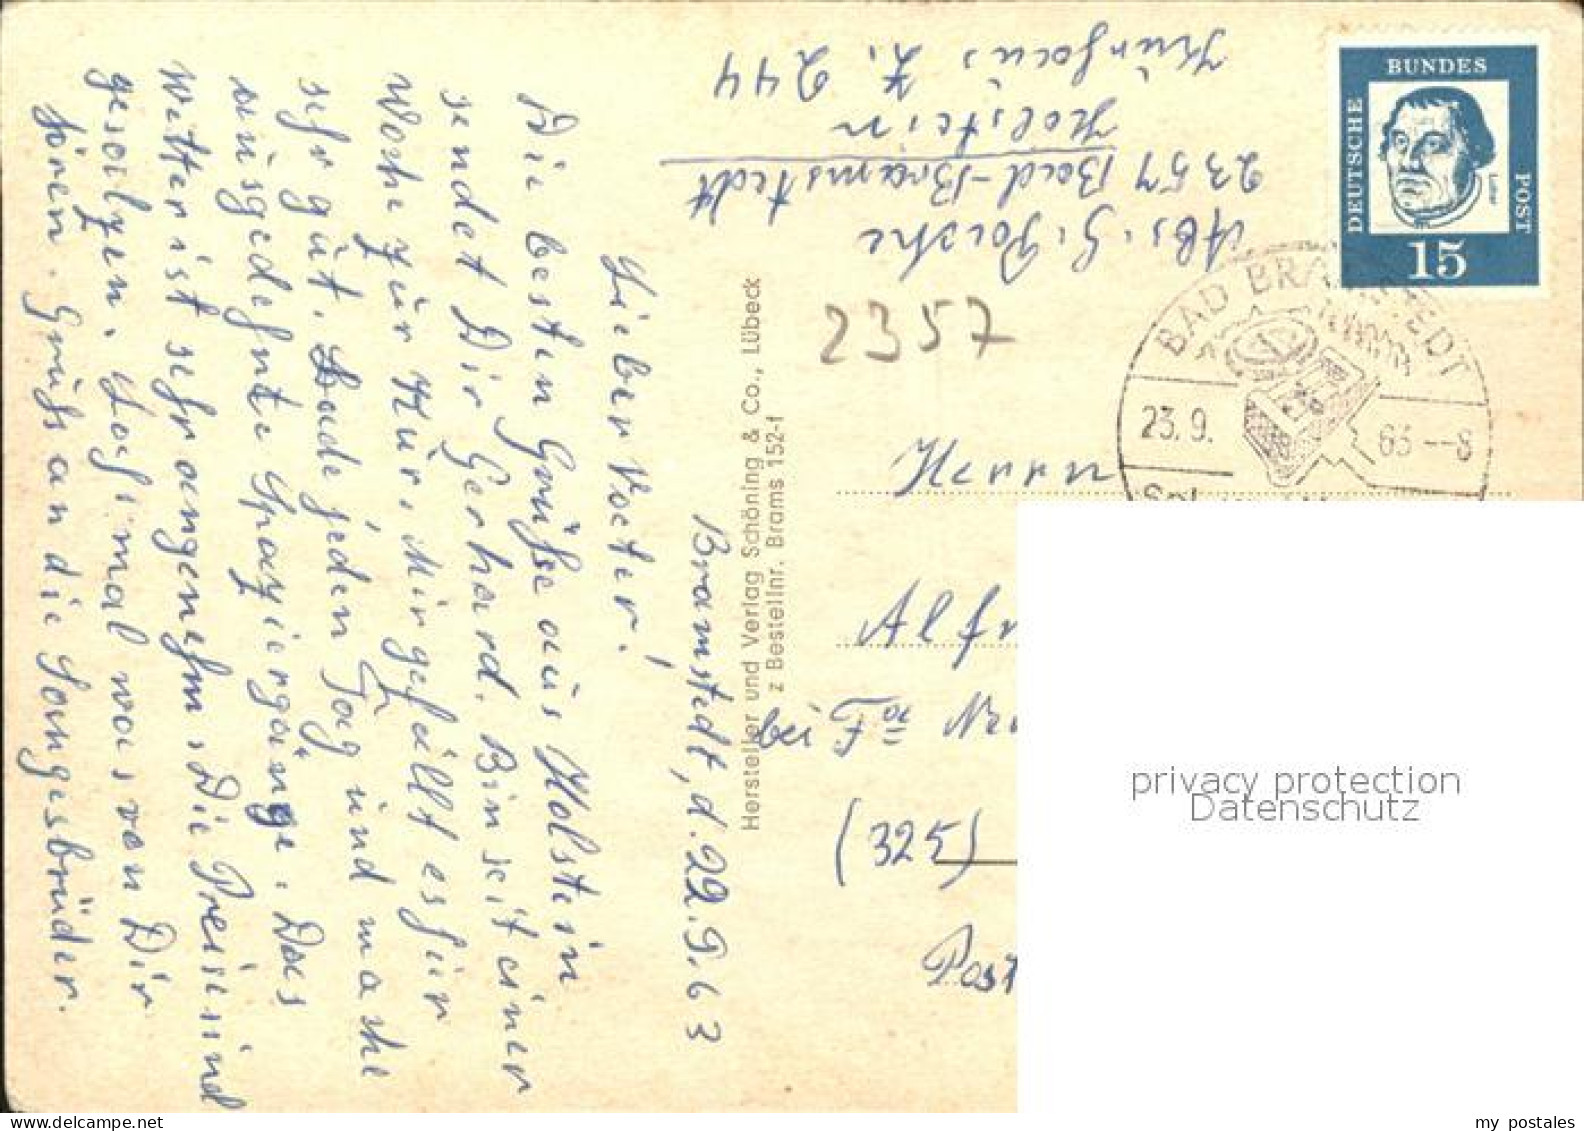 Bramstedt, d. 22.9.63
Lieber Vater!
Die besten Grüße aus Holstein
sendet Dir Gerhard. Bin seit einer
Woche zur Kur. Mir gefällt es hier
sehr gut. Bade jeden Tag und mache
ausgedehnte Spaziergänge. Das
Wetter ist sehr angenehm. Die Preise sind
gesalzen. Laß mal was von Dir
hören. Gruß an die Sangesbrüder.
Hersteller und Verlag Schöning & Co., Lübeck
z Bestellnr. Brams 152-f
Abs. G. Pasche
2357 Bad-Bramstedt
Holstein
Kurhaus Z. 244
2357
DEUTSCHE
BUNDES
POST
Luther
15
BAD BRAMSTEDT
23.9. 63--8
Sol
Herrn
Alfr
bei Fr
(325)
Post
privacy protection
Datenschutz
my postales